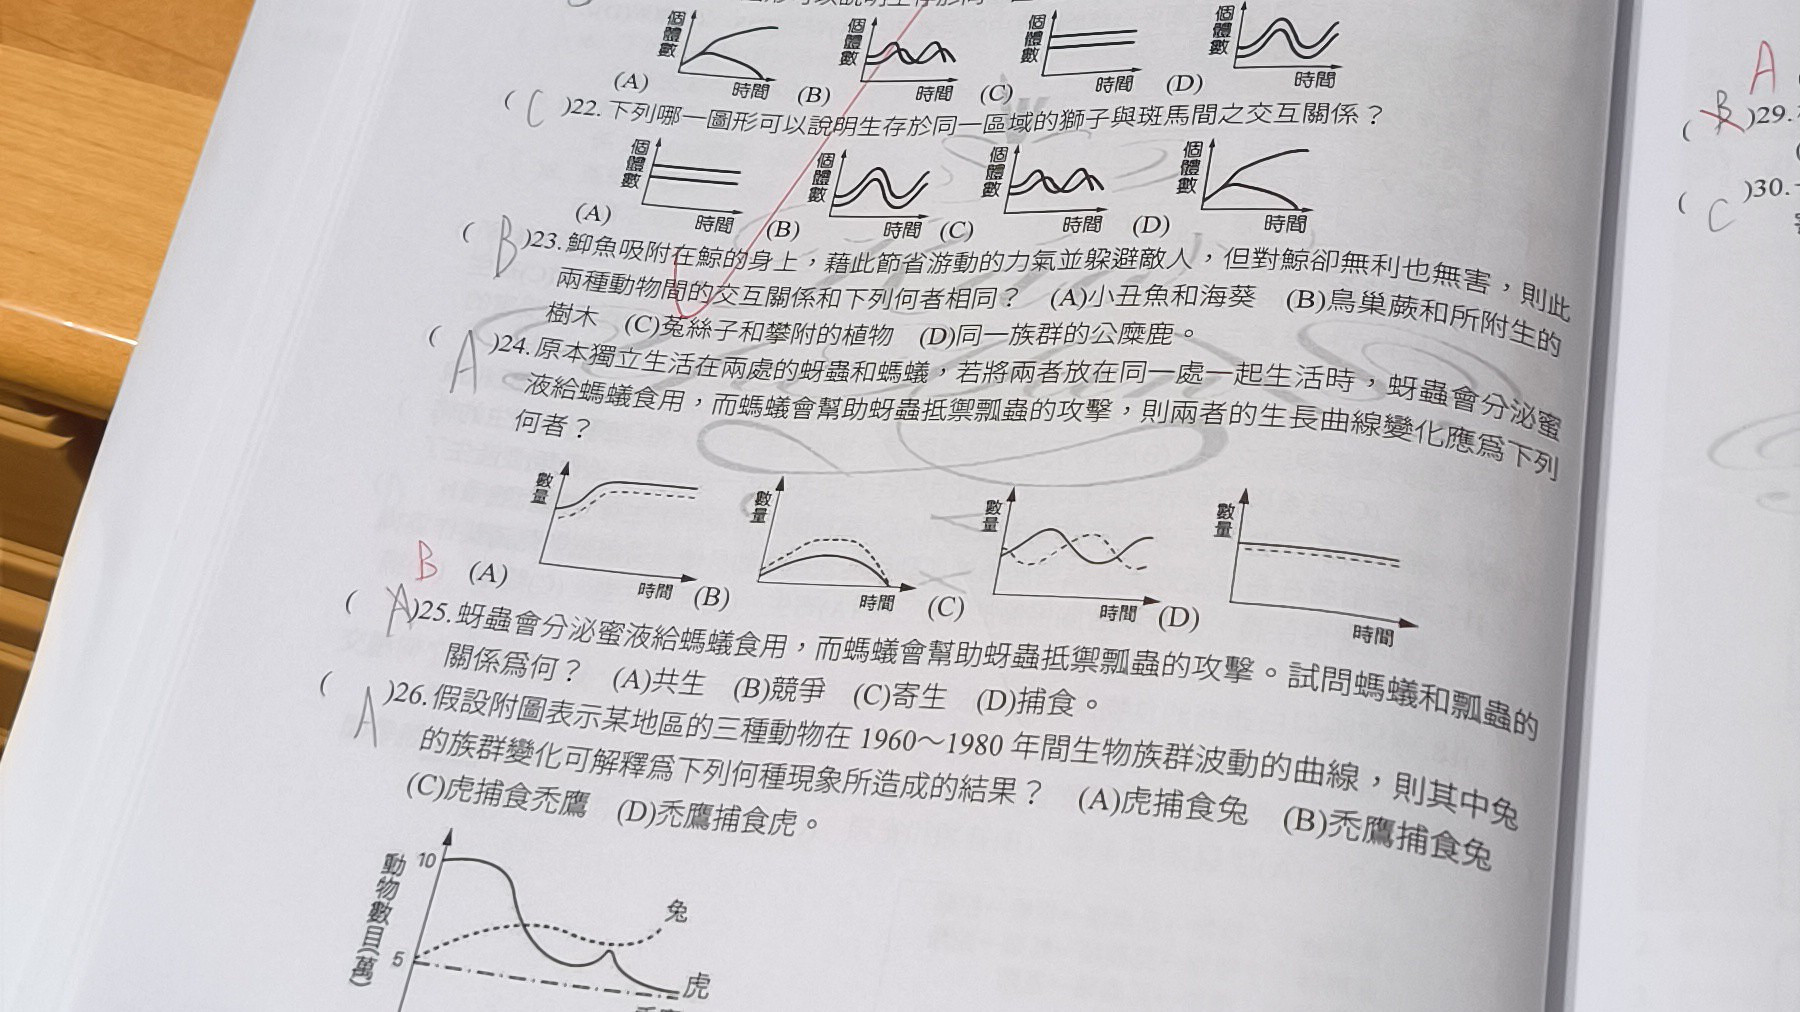 個體數
個體數
個體數
個體數
(A) 時間 (B) 時間 (C) 時間 (D) 時間
( C )22. 下列哪一圖形可以說明生存於同一區域的獅子與斑馬間之交互關係？
個體數
個體數
個體數
個體數
(A) 時間 (B) 時間 (C) 時間 (D) 時間
( B )23. 鮣魚吸附在鯨的身上，藉此節省游動的力氣並躲避敵人，但對鯨卻無利也無害，則此
兩種動物間的交互關係和下列何者相同？ (A)小丑魚和海葵 (B)鳥巢蕨和所附生的
樹木 (C)菟絲子和攀附的植物 (D)同一族群的公麋鹿。
( A )24. 原本獨立生活在兩處的蚜蟲和螞蟻，若將兩者放在同一處一起生活時，蚜蟲會分泌蜜
液給螞蟻食用，而螞蟻會幫助蚜蟲抵禦瓢蟲的攻擊，則兩者的生長曲線變化應為下列
何者？
數量
數量
數量
數量
(A) 時間 (B) 時間 (C) 時間 (D) 時間
B
( A )25. 蚜蟲會分泌蜜液給螞蟻食用，而螞蟻會幫助蚜蟲抵禦瓢蟲的攻擊。試問螞蟻和瓢蟲的
關係為何？ (A)共生 (B)競爭 (C)寄生 (D)捕食。
( A )26. 假設附圖表示某地區的三種動物在 1960～1980 年間生物族群波動的曲線，則其中兔
的族群變化可解釋為下列何種現象所造成的結果？ (A)虎捕食兔 (B)禿鷹捕食兔
(C)虎捕食禿鷹 (D)禿鷹捕食虎。
動物數目(萬)
10
5
兔
虎
A
( B )29.
( C )30.